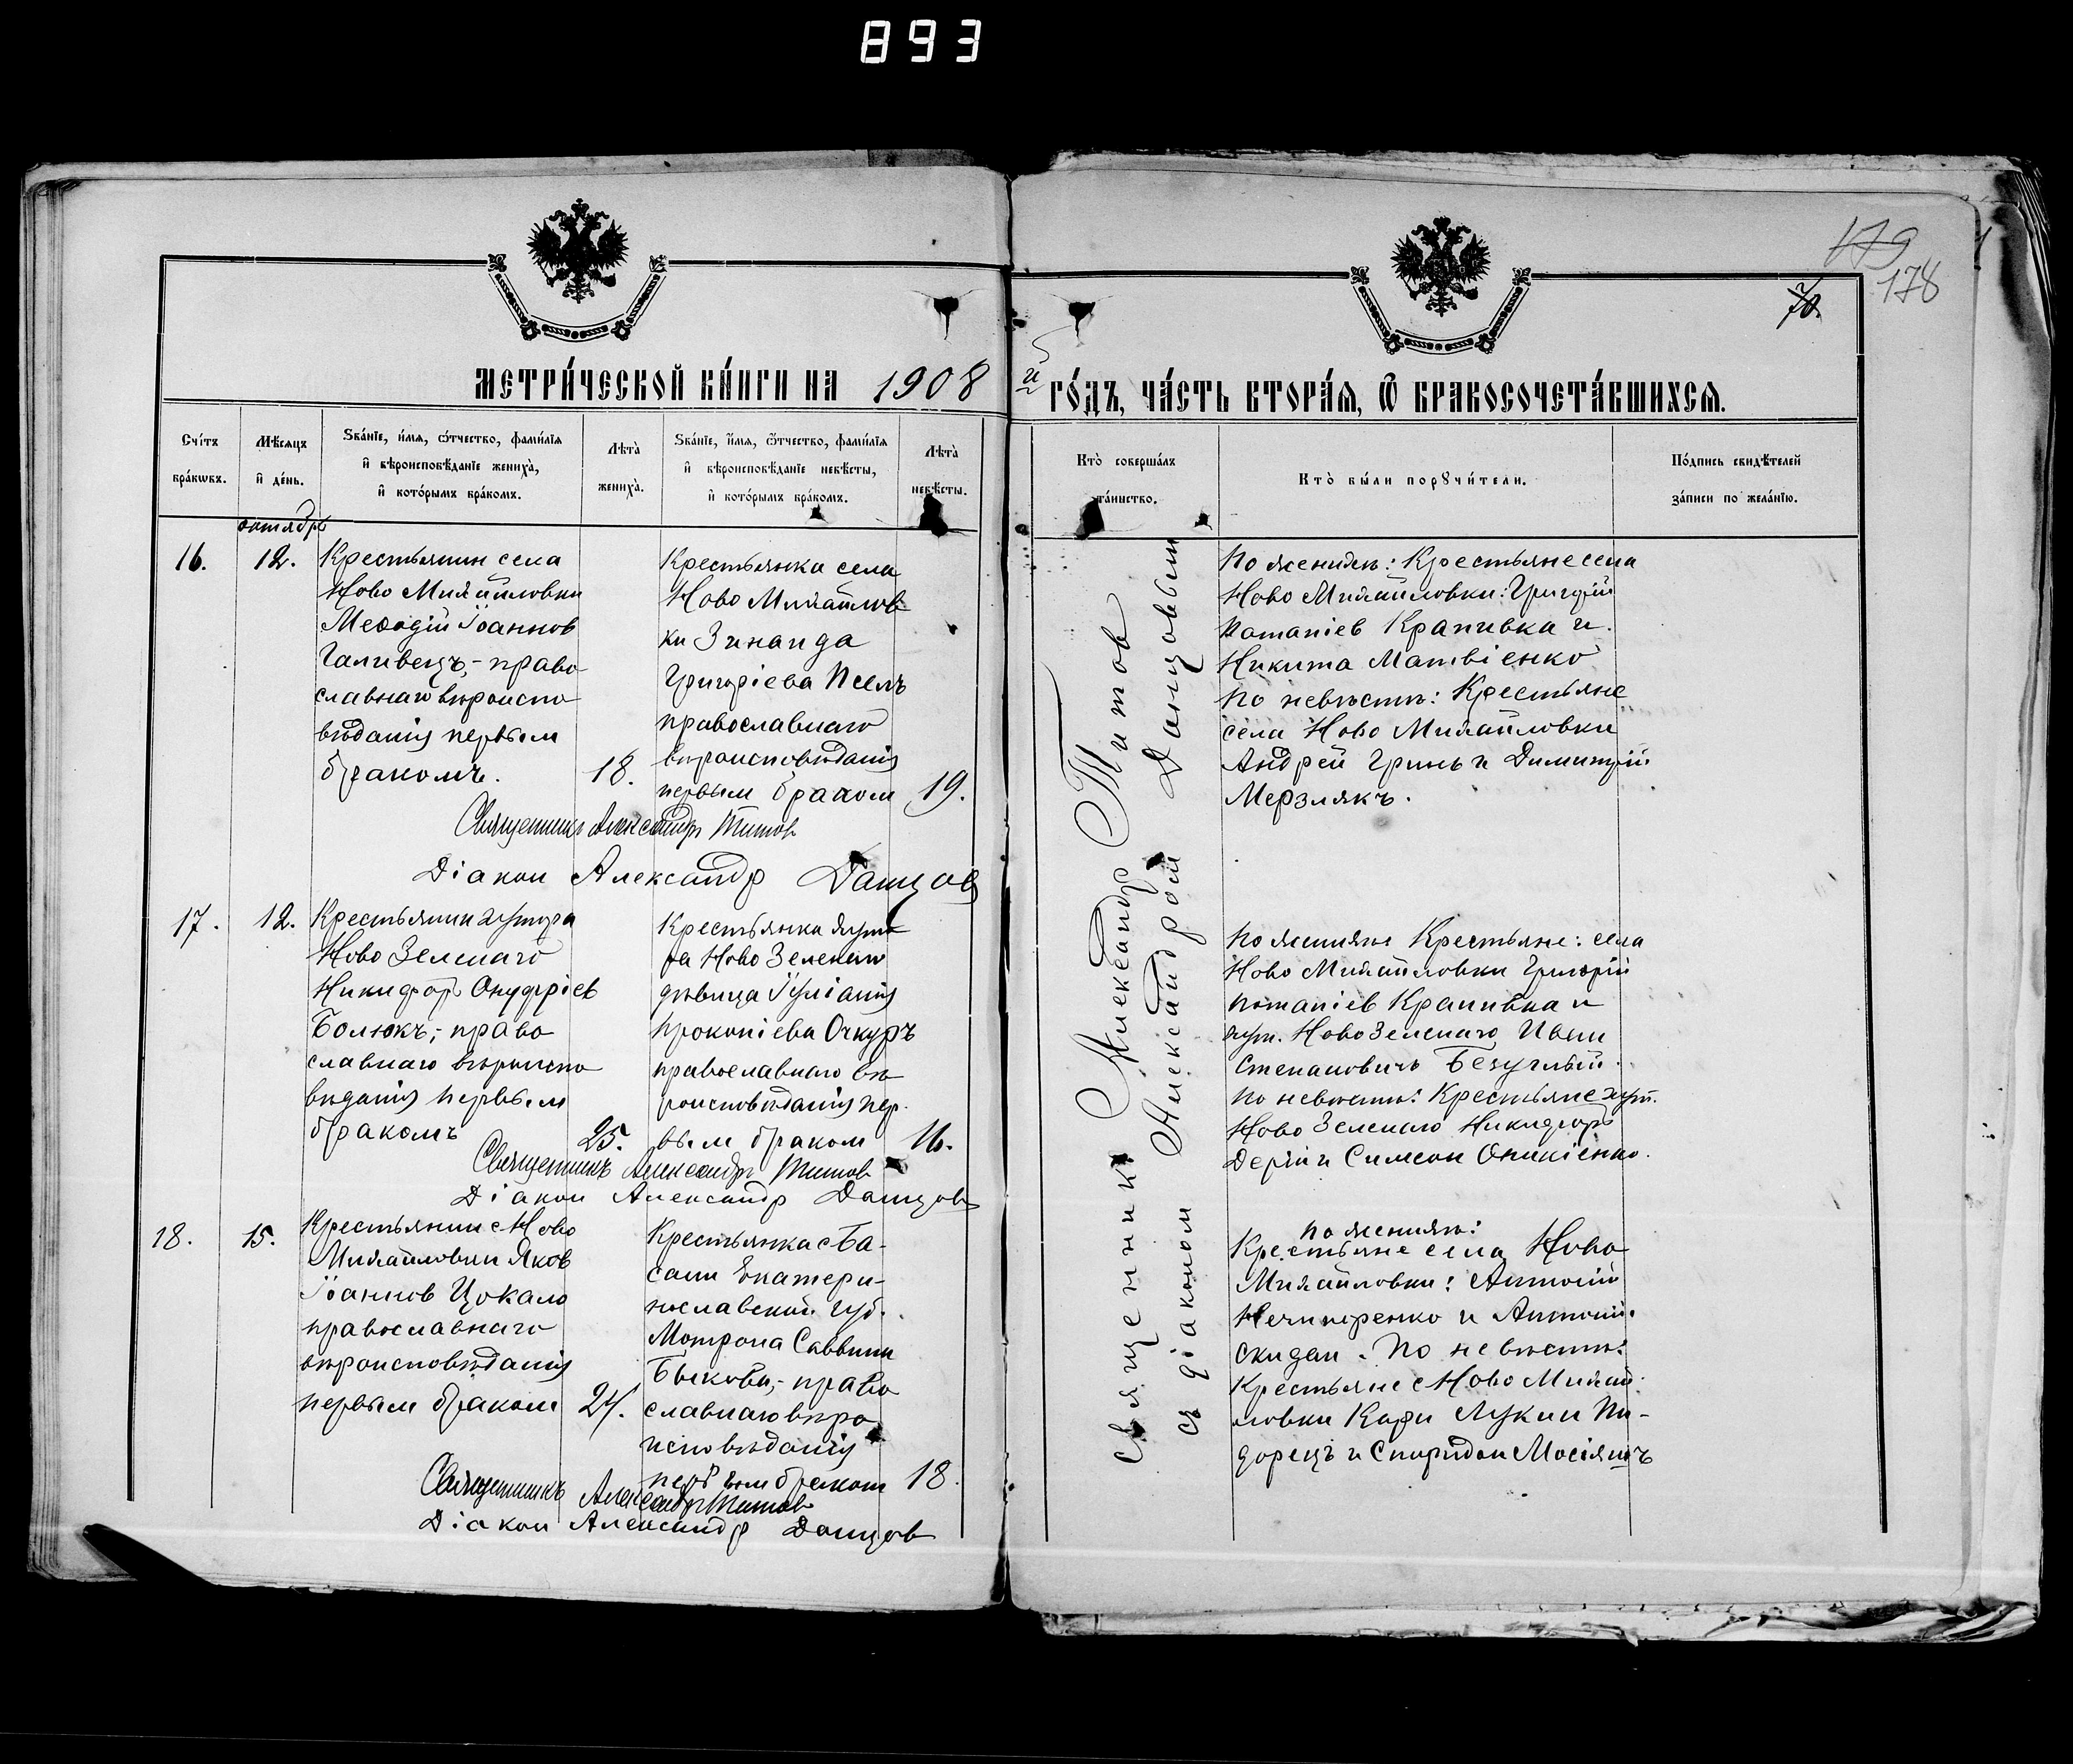 893
179
178
70.
МЕТРИ́ЧЕСКОЙ КНИ́ГИ НА 1908 й ГО́ДЪ, ЧА́СТЬ ВТОРА́Я, Ѿ БРАКОСОЧЕТА́ВШИХСЯ.
Сче́тъ бра́кѡвъ.
Мѣ́сяцъ и҆ де́нь.
Ѕва́нїе, и҆́мя, ѻ҆́тчество, фами́лїя и҆ вѣроисповѣ́данїе жениха̀, и҆ кото́рымъ бра́комъ.
Лѣта̀ жениха̀.
Ѕва́нїе, и҆́мя, ѻ҆́тчество, фами́лїя и҆ вѣроисповѣ́данїе невѣ́сты, и҆ кото́рымъ бра́комъ.
Лѣта̀ невѣ́сты.
Кто̀ соверша́лъ та́инство.
Кто̀ бы́ли порꙋчи́тели.
По́дпись свидѣ́телей за́писи по жела́нїю.
октябрь
16.
12.
Крестьянин села
Ново Михайловки
Меѳодій Іоаннов
Галивецъ,- право
славнаго вѣроиспо
вѣданія первым
бракомъ.
18.
Крестьянка села
Ново Михайлов
ки Зинаида
Григоріева Пселъ
православнаго
вѣроисповѣданія
первым браком
19.
Священникъ Александръ Титов
Діакон Александр Данцов
По женихѣ: Крестьяне села
Ново Михайловки: Григорій
Потапіев Крапивка и
Никита Матвіенко
По невѣстѣ: Крестьяне
села Ново Михайловки
Андрей Гринь и Димитрій
Мерзлякъ.
17.
12.
Крестьянин хутора
Ново Зеленаго
Никифоръ Онуфріев
Болюкъ,- право
славнаго вѣроиспо
вѣданія первым
бракомъ
25.
Крестьянка хуто
ра Ново Зеленаго
дѣвица Іуліанія
Прокопіева Очкуръ
православнаго вѣ
роисповѣданія пер
вым браком
16.
Священникъ Александръ Титов
Діакон Александр Данцов
По женихѣ Крестьяне: села
Ново Михайловки Григорій
Потапіев Крапивка и
хут. Ново Зеленаго Иван
Степановичъ Безуглый
По невѣстѣ: Крестьяне хут.
Ново Зеленаго Никифоръ
и Симеон Оникіенко.
18.
15.
Крестьянин с Ново
Михайловки Яков
Іоаннов Цокало
православнаго
вѣроисповѣданія
первым браком
24.
Крестьянка с Ба-
сани Екатери-
нославской губ.
Мотрона Саввина
Быкова,- право
славнаго вѣро
исповѣданія
первым браком
18.
Священникъ Александръ Титов
Діакон Александр Данцов
По женихѣ:
Крестьяне села Ново
Михайловки: Антоній
Нечипоренко и Антоній
Скидан. По невѣстѣ:
Крестьяне с Ново Михай
ловки Лукин
и Спиридон
Священникъ Александр Титов
съ діаконом Александром Данцовым